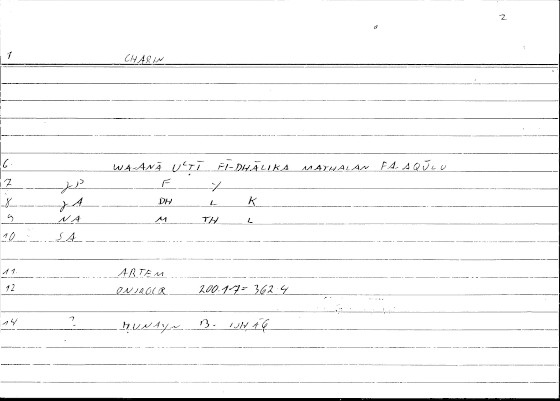 2
1 CHARIN
6 WA-ANĀ UʿṬĪ FĪ-DHĀLIKA MATHALAN FA-AQŪLU
7 gP F Y
8 gA DH L K
9 NA M TH L
10 SA
11 ARTEM
12 200.1-7= 362.4
14 ? ḤUNAYN B. ISḤĀQ